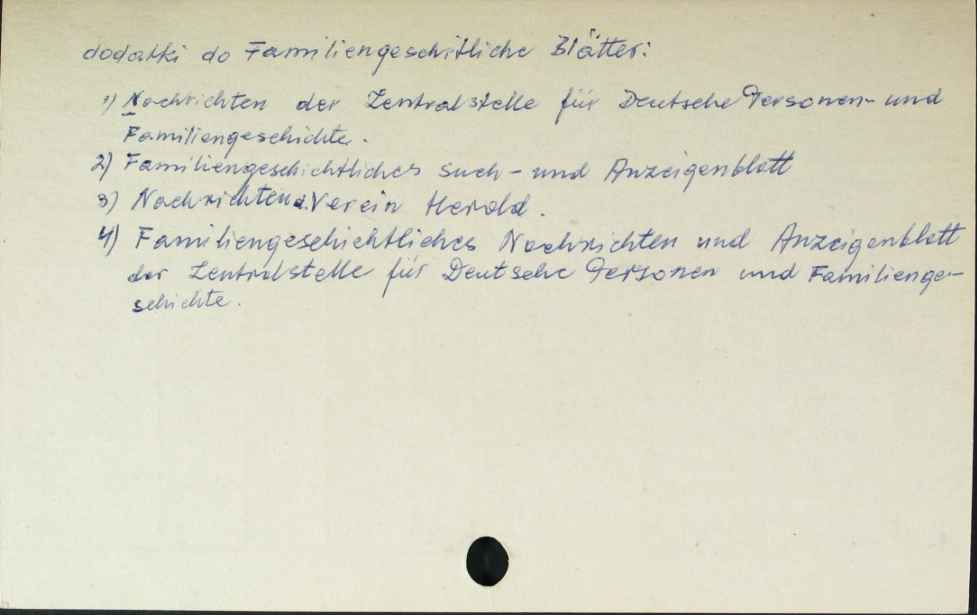 dodatki do Familiengeschitliche Blätter:
1) Nachrichten der Zentralstelle für Deutsche Personen- und
Familiengeschichte.
2) Familiengeschichtliches Such- und Anzeigenblatt
3) Nachrichten d. Verein Herold.
4) Familiengeschichtliches Nachrichten und Anzeigenblatt
der Zentralstelle für Deutsche Personen und Familienge-
schichte.